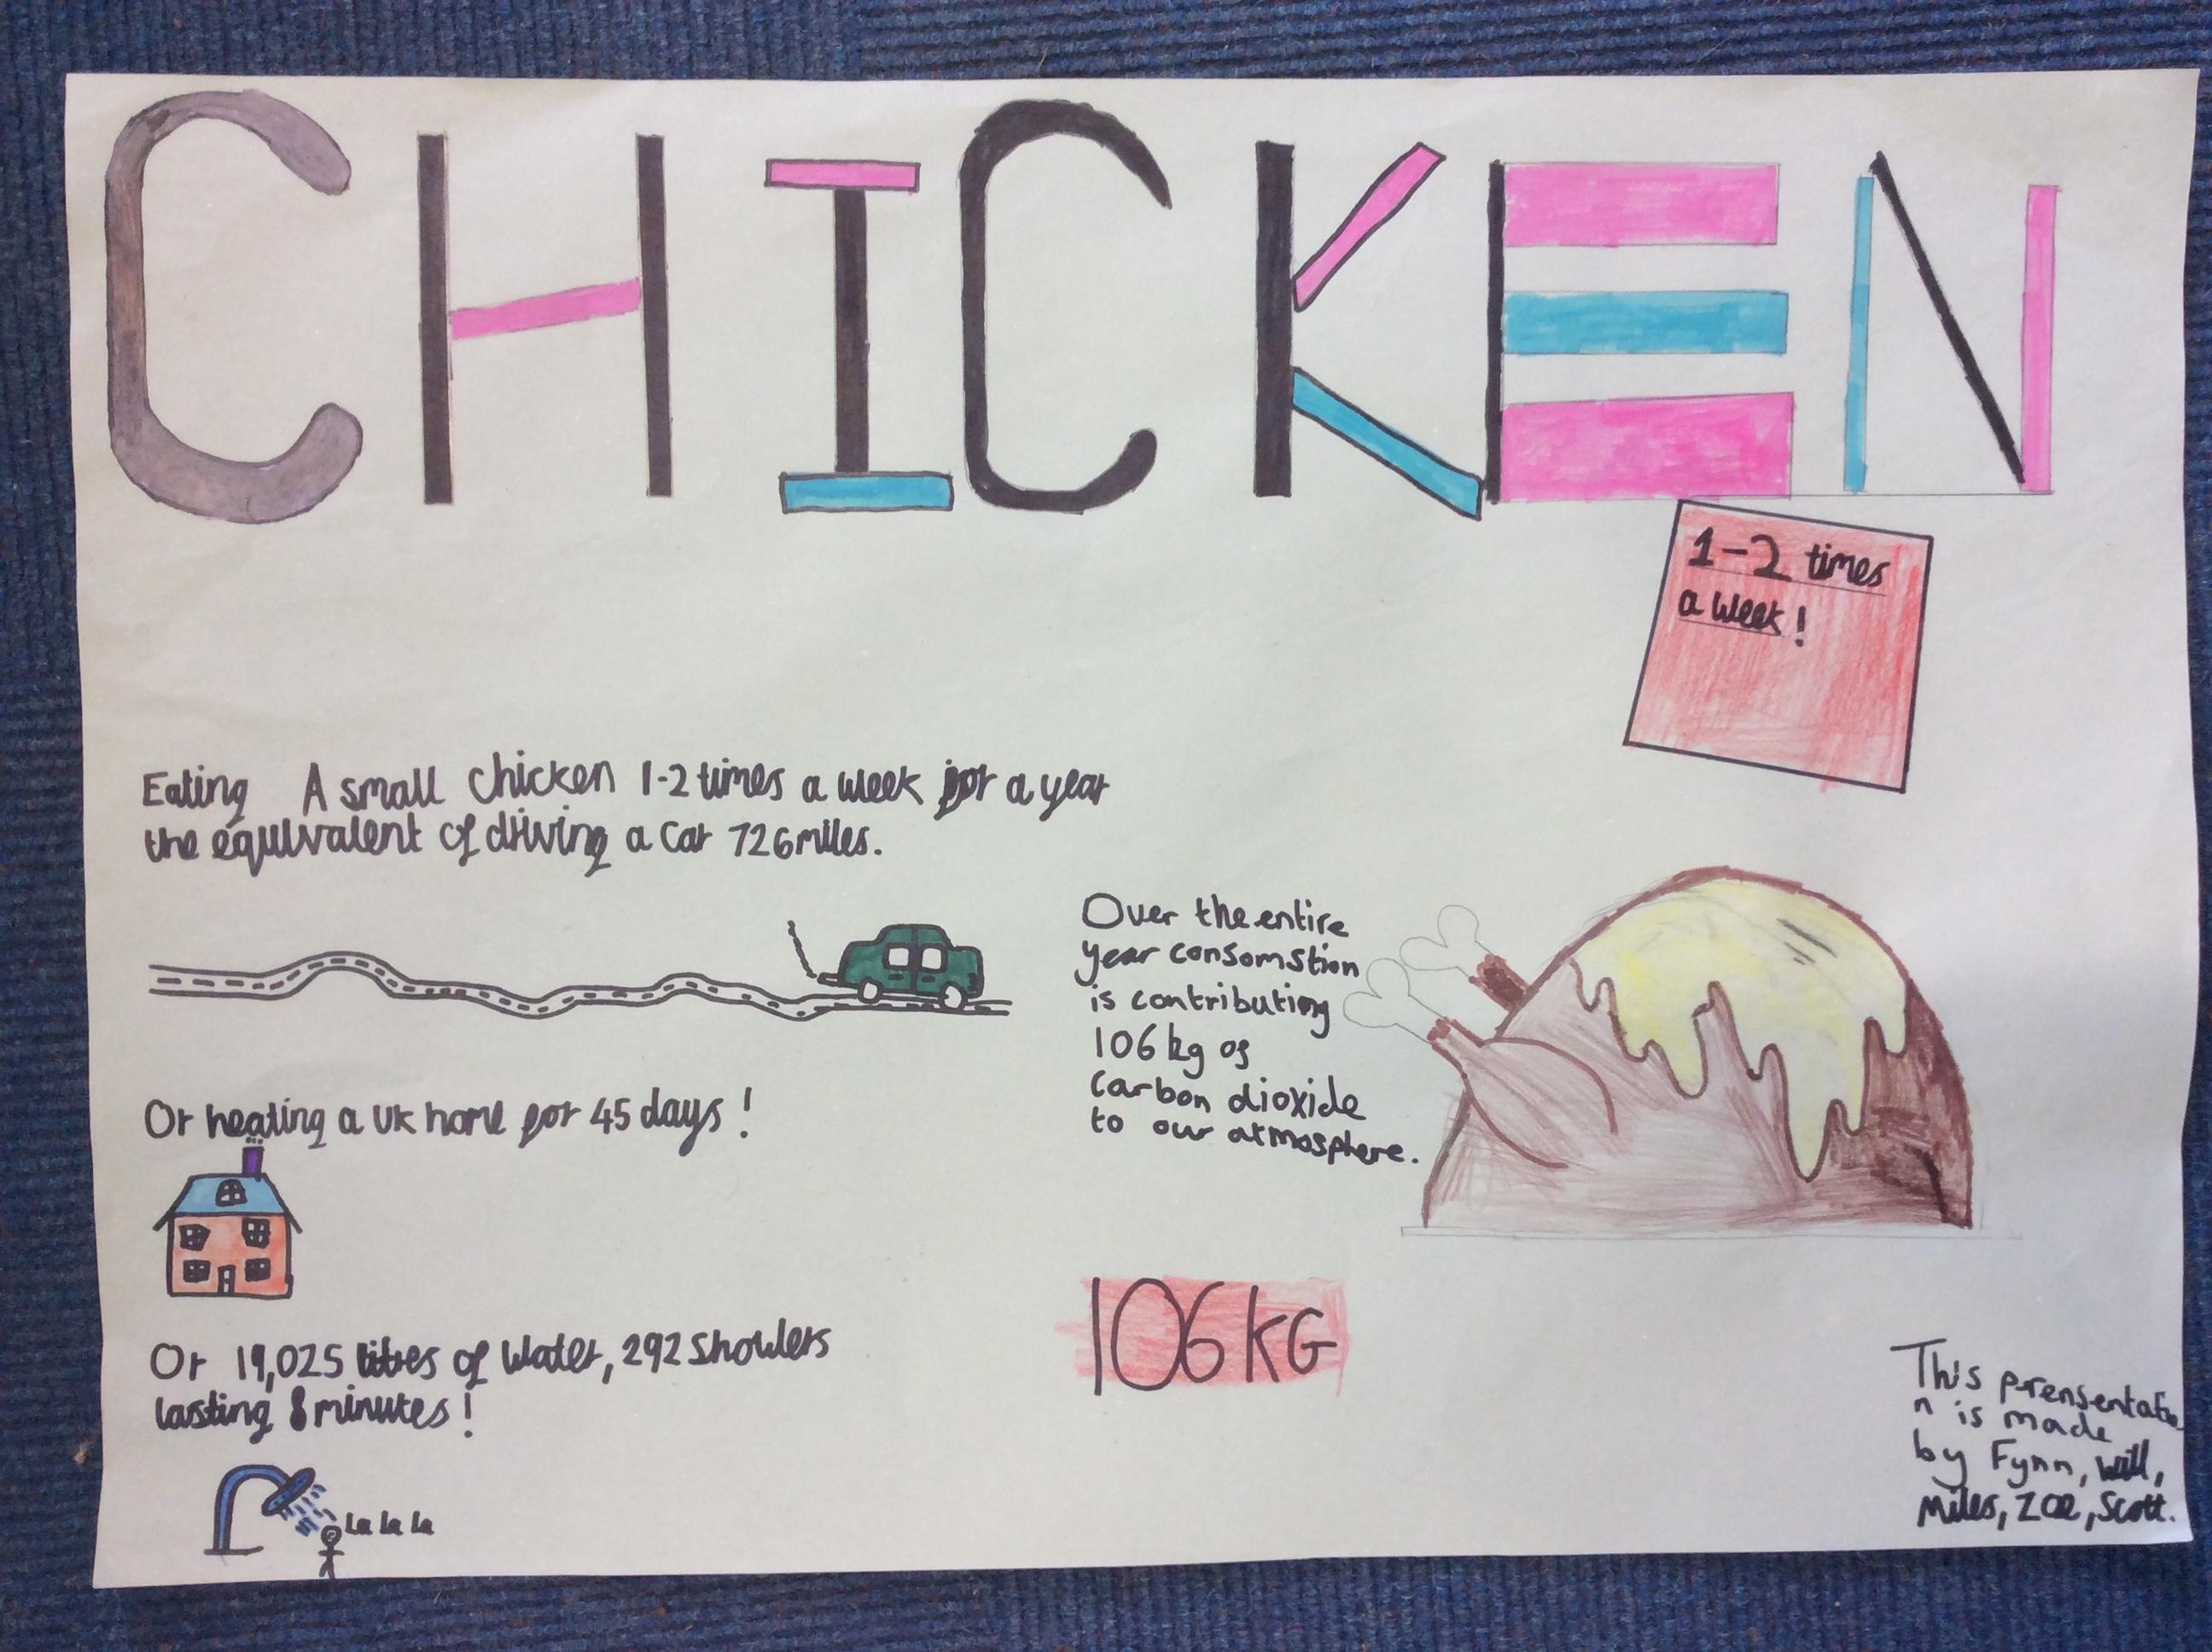 CHICKEN
1-2 times
a week!
Eating A small chicken 1-2 times a week for a year
the equivalent of driving a car 726 miles.
Over the entire
year consomstion
is contributing
106 kg of
carbon dioxide
to our atmosphere.
Or heating a UK home for 45 days!
106 KG
Or 19,025 litres of water, 292 showers
lasting 8 minutes!
La la la
This prensentatio
n is made
by Fynn, will,
Miles, Zoe, Scott.